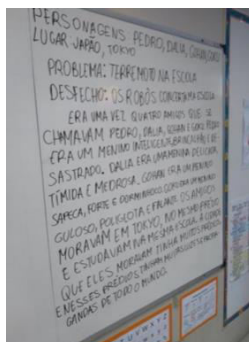 PERSONAGENS: PEDRO, DALIA, GOHAN, GOKU
LUGAR: JAPÃO, TOKYO
PROBLEMA: TERREMOTO NA ESCOLA
DESFECHO: OS ROBÔS CONSERTAM A ESCOLA
ERA UMA VEZ QUATRO AMIGOS QUE SE
CHAMAVAM PEDRO, DALIA, GOHAN E GOKU. PEDRO
ERA UM MENINO INTELIGENTE, BRINCALHÃO E DE
SASTRADO. DALIA ERA UMA MENINA DELICADA,
TÍMIDA E MEDROSA. GOHAN ERA UM MENINO
SAPECA, FORTE E DORMINHOCO. GOKU ERA UM MENINO
GULOSO, POLIGLOTA E FALANTE. OS AMIGOS
MORAVAM EM TOKYO, NO MESMO PRÉDIO
E ESTUDAVAM NA MESMA ESCOLA. A CIDADE
QUE ELES MORAVAM TINHA MUITOS PRÉDIOS
E NESSES PRÉDIOS, TINHAM
GANDAS DE TODO O MUNDO.